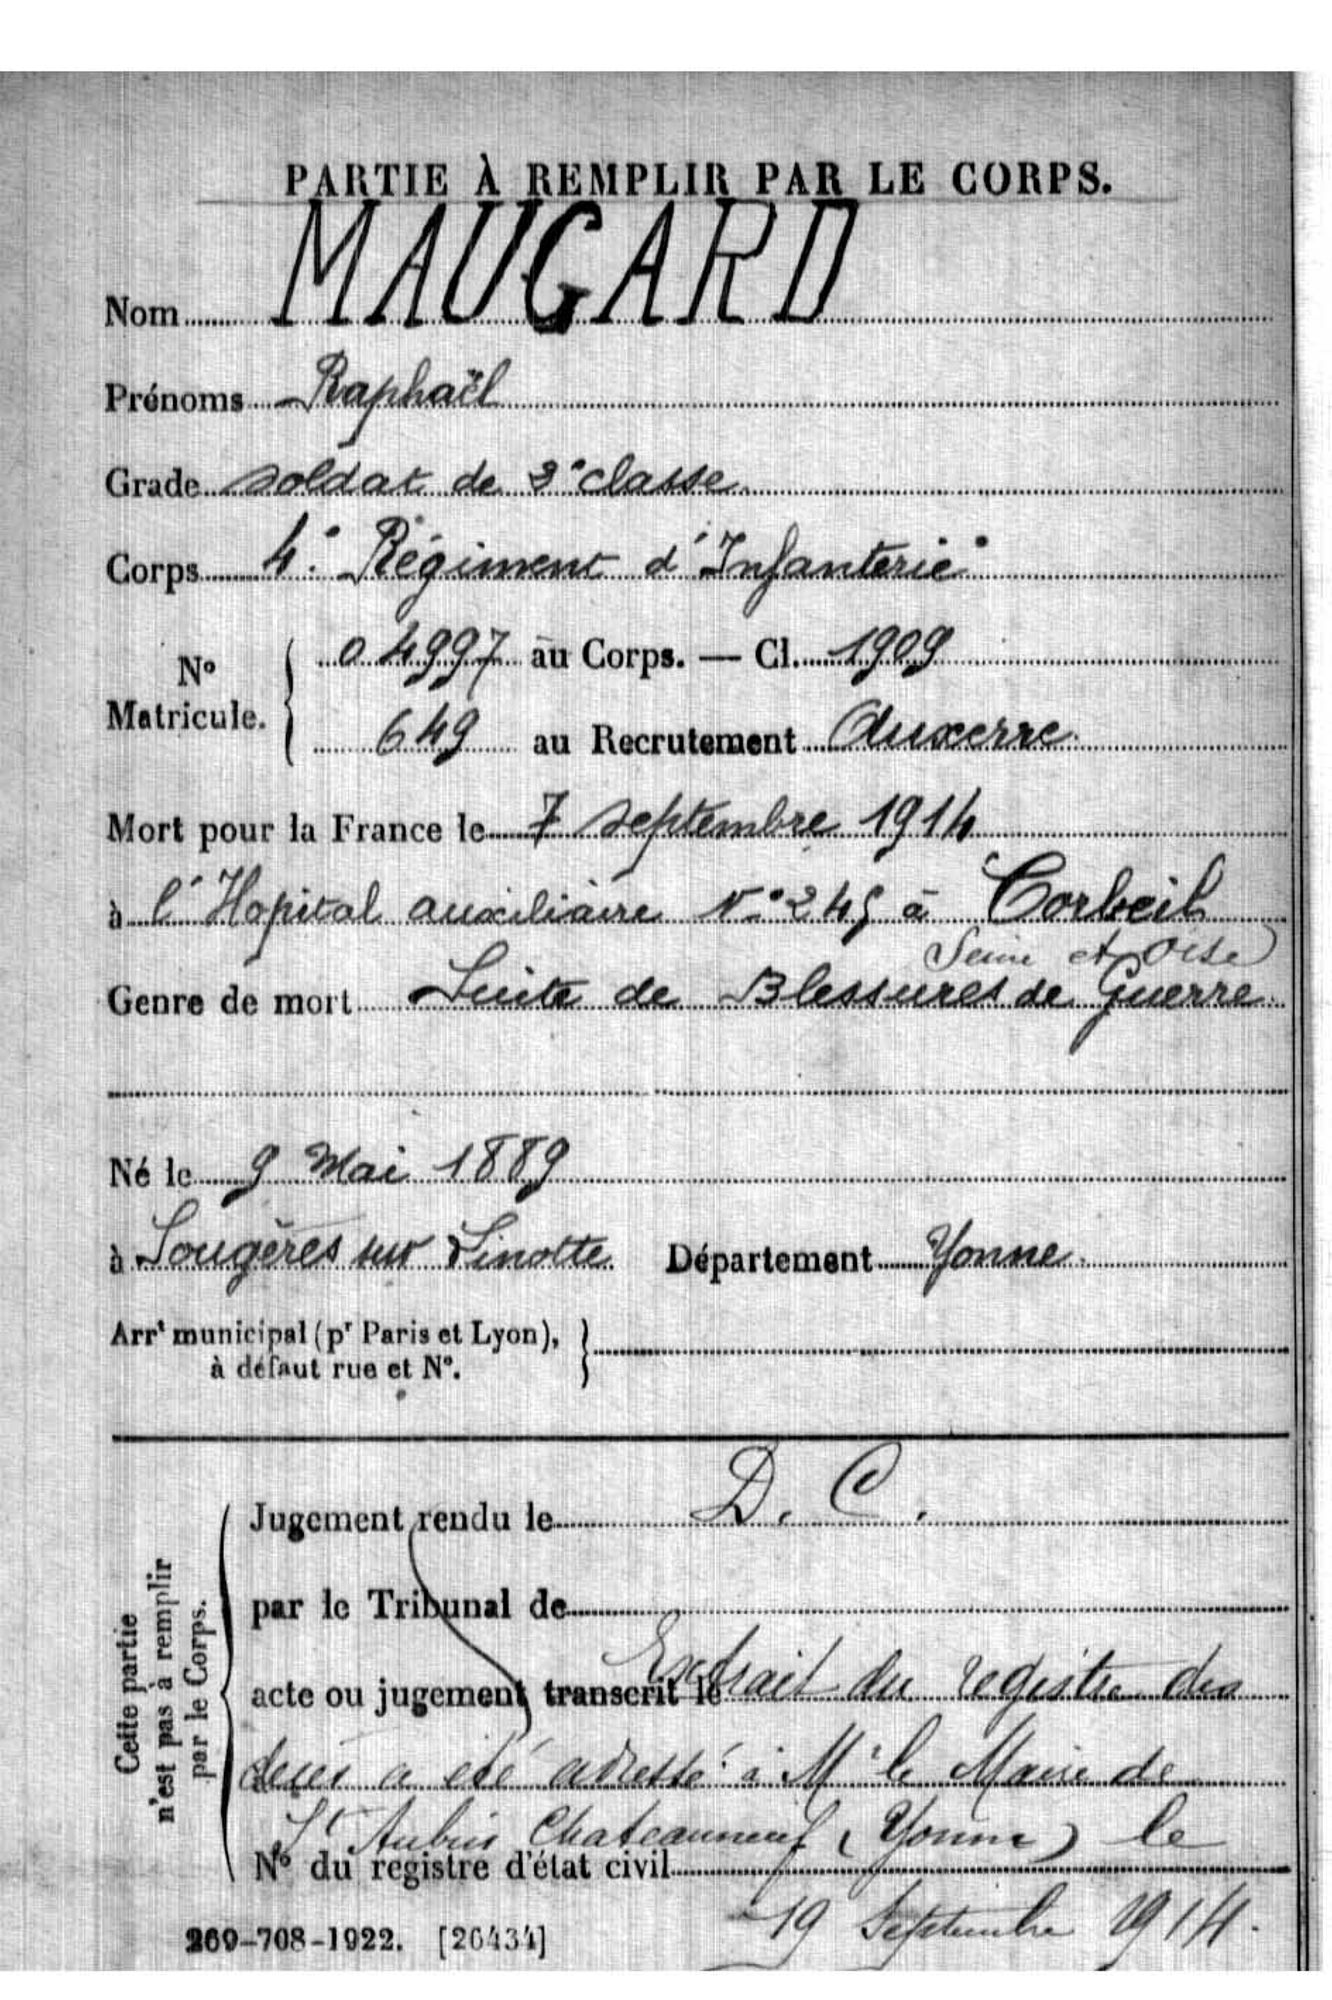 PARTIE À REMPLIR PAR LE CORPS.
Nom MAUGARD
Prénoms Raphaël
Grade soldat de 2e classe
Corps 4e Régiment d'Infanterie
No Matricule. { 04997 au Corps. — Cl. 1909
649 au Recrutement Auxerre
Mort pour la France le 7 septembre 1914
à l'Hopital auxiliaire No 245 à Corbeil
Seine et Oise)
Genre de mort Suite de Blessures de Guerre
Né le 9 Mai 1889
à Sougères sur Sinotte Département Yonne
Arrt municipal (pr Paris et Lyon), }
à défaut rue et No.
Cette partie n'est pas à remplir par le Corps.
Jugement rendu le D. C.
par le Tribunal de
acte ou jugement transcrit le Extrait du registre des
décès a été adressé à Mr le Maire de
St Aubin Chateauneuf (Yonne) le
No du registre d'état civil
19 Septembre 1914.
269-708-1922. [26434]